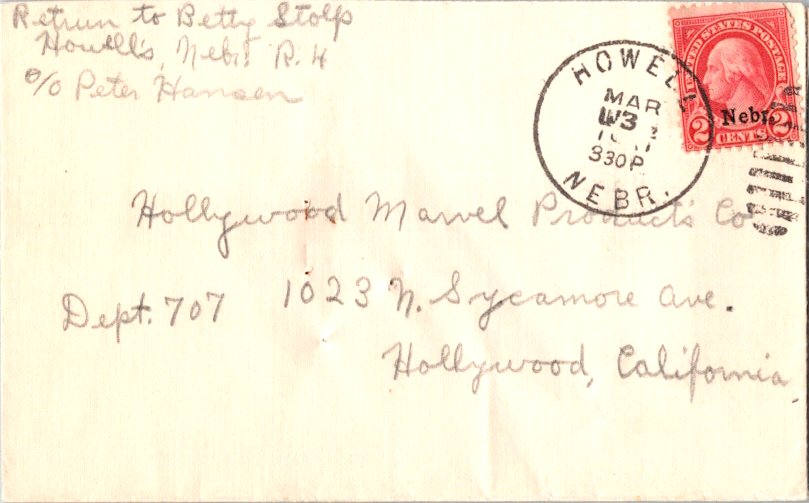 Retrun to Betty Stolp
Howells, Nebr. R. 4
c/o Peter Hansen
HOWELL
MAR
3
330P
NEBR.
UNITED STATES POSTAGE
Nebr.
2 CENTS 2
Hollywood Marvel Products Co
Dept. 707 1023 N. Sycamore Ave.
Hollywood, California